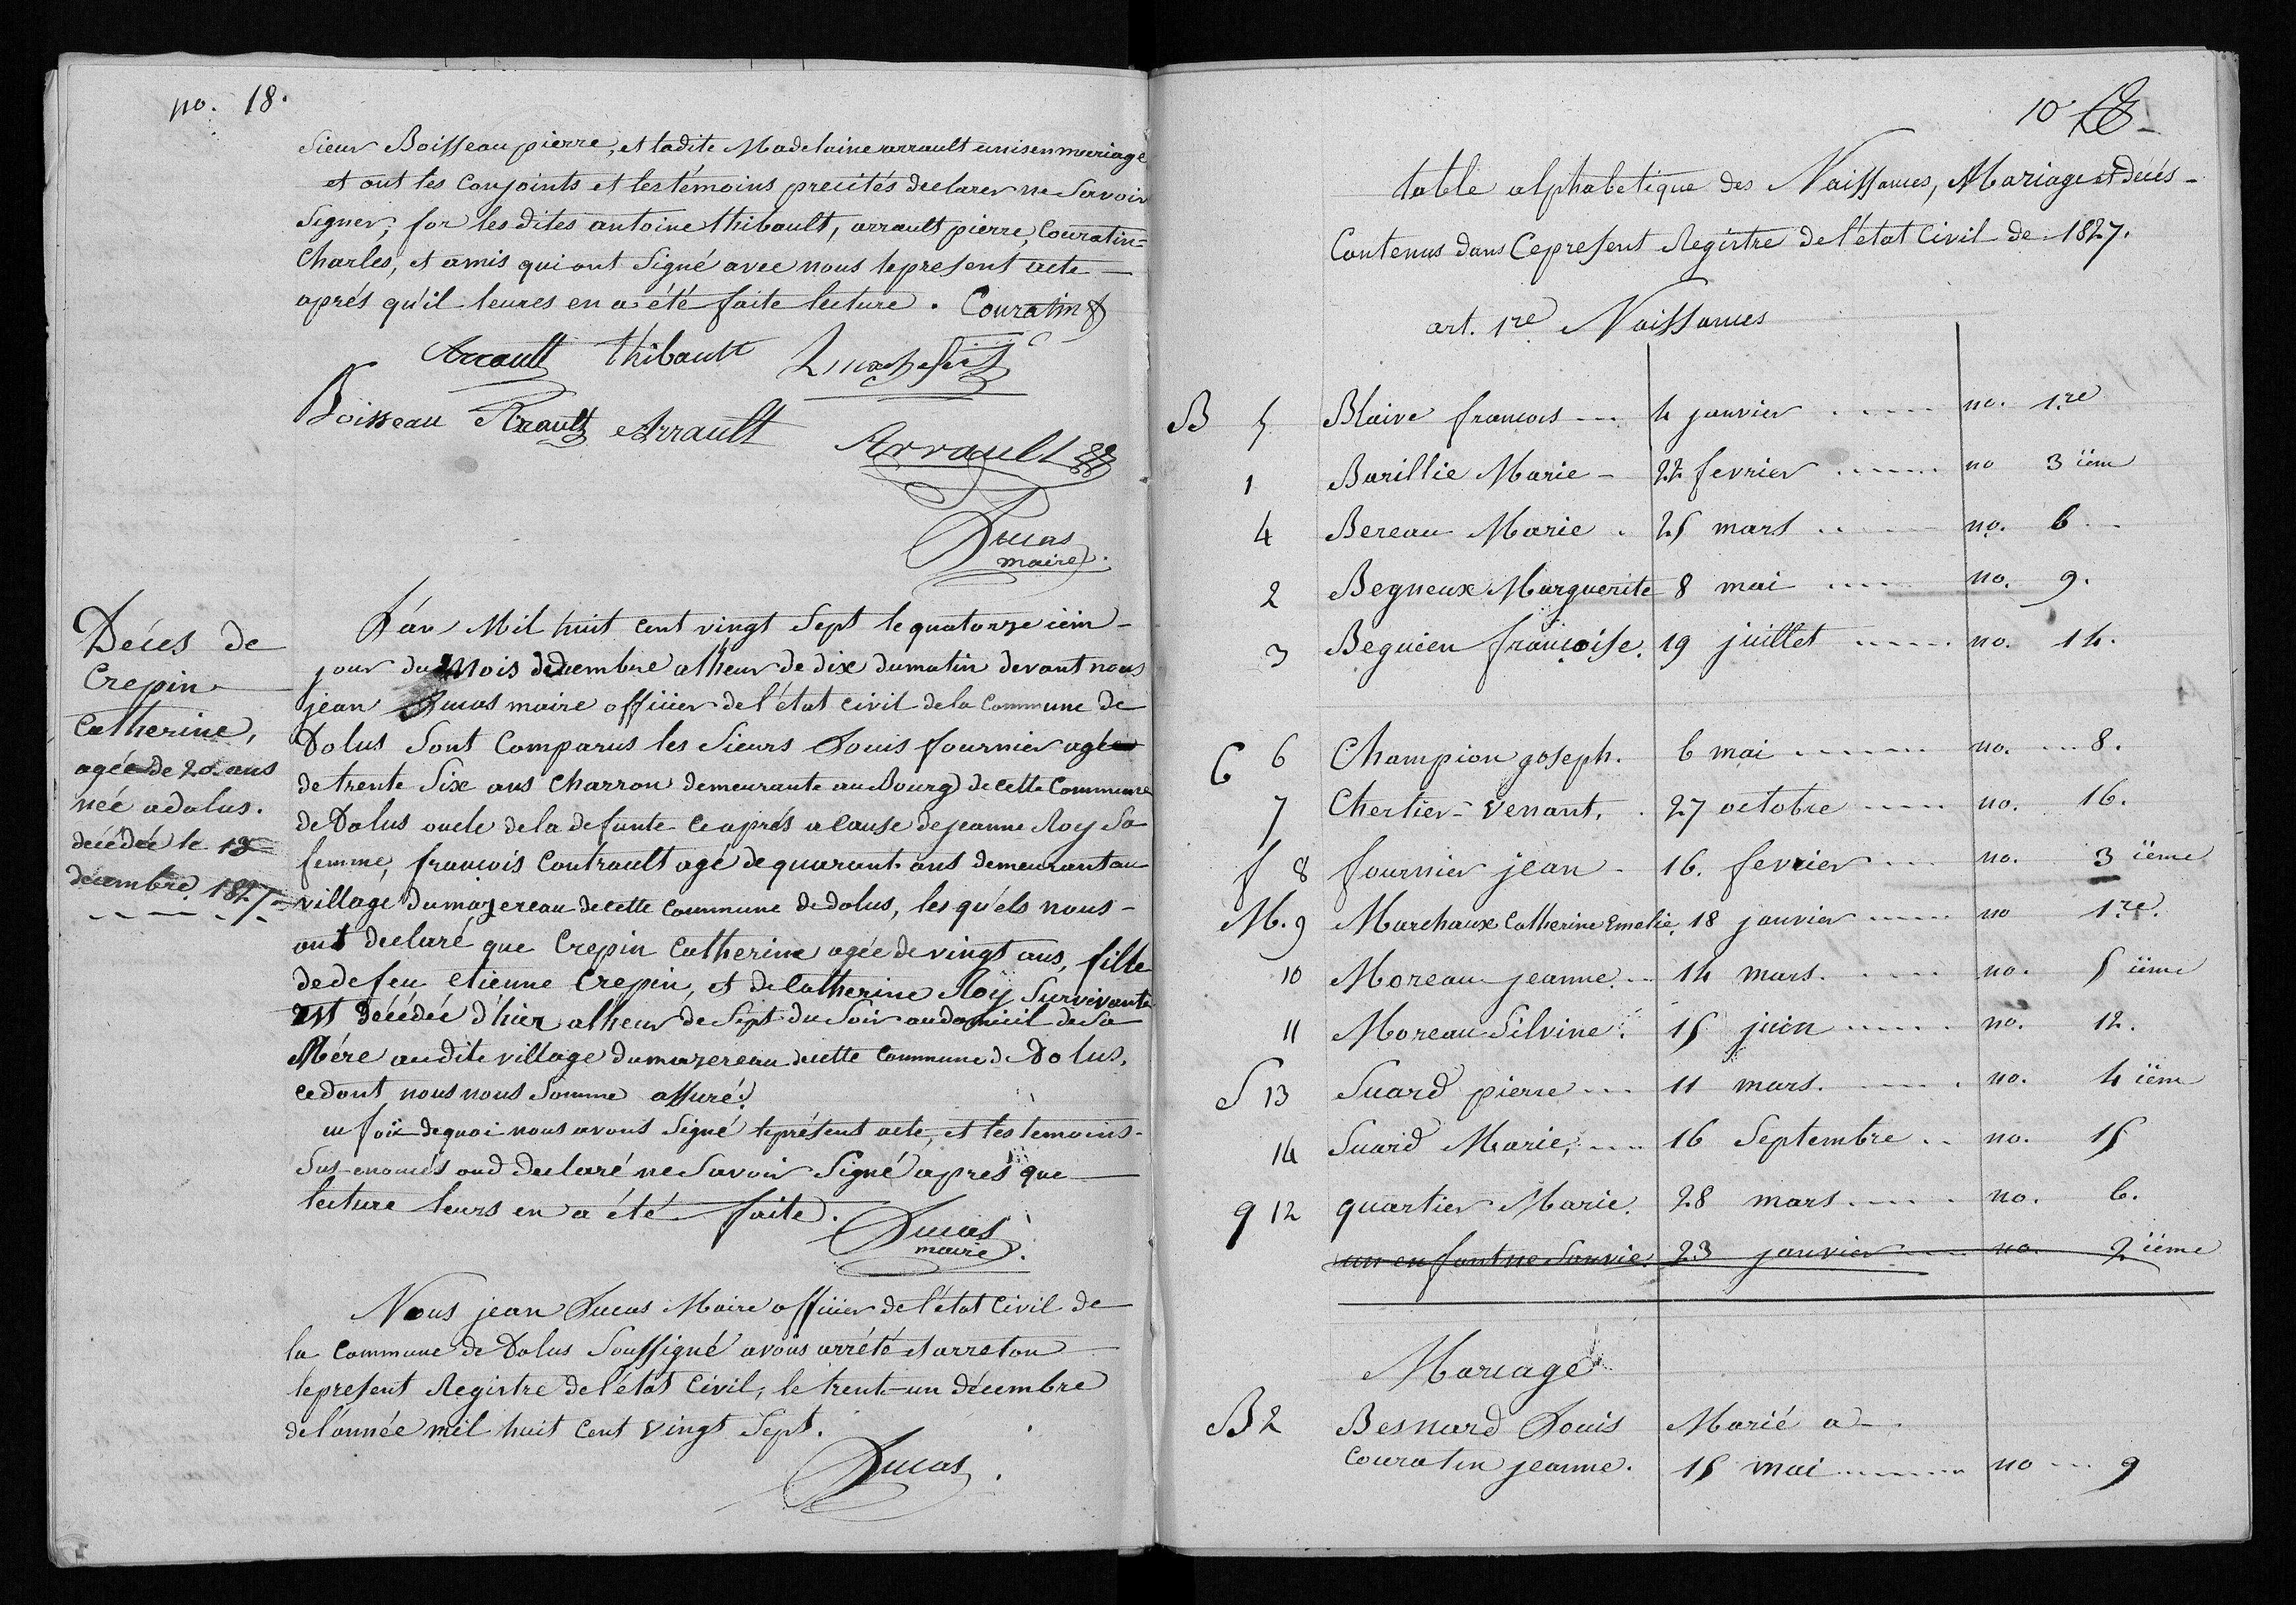 no. 18.
Sieur Boisseau pierre, et ladite Madelaine arrault unis en mariage
et ont les Conjoints et les témoins precités declarer ne Savoir
Signer, for les dites antoine thibault, arrault pierre, Couratin=
Charles, et amis qui ont Signé avec nous le present acte
aprés qu'il leures en a été faite lecture. Couratin
Arrault thibault
Boisseau Arault Arrault
Arrault
Lucas
maire.
Décés de
Crepin
Catherine,
agée de 20. ans
neé a dolus.
decédée le 13
decembre. 1827
L'an Mil huit cent vingt Sept le quatorze iém
jour du Mois decembre a lheur de dix du matin devant nous
jean Lucas maire officier de l'état civil de la Commune de
Dolus Sont Comparus les Sieurs Louis fournier agé
de trente Six ans Charron demeurante au Bourg de cette Commune
de Dolus oncle de la defunte ci aprés a cause de jeanne Roy Sa
femme, francois Contrault agé de quarant ans demeurant au
village du mazereau de cette Commune de dolus, les qu'els nous
ont declaré que Crepin Catherine agée de vingt ans, fille
de defeu etienne Crepin, et de Catherine Roÿ Survivante
est décédée d'hier a lheur de Sept du Soir au domicil de Sa
Mére audite village du mazereau de cette Commune de Dolus,
ce dont nous nous Somme assuré.
en foïi de quoi nous avons Signé le présent acte, et les temoins
Sus-enomés ond declaré ne Savoir Signé aprés que
lecture leurs en a été faite.
Lucas
maire.
Nous jean Lucas Maire officier de l'état Civil de
la Commune de Dolus Soussigné avons arrété et arreton
le present Registre de l'état Civil, le trente-un décembre
de l'année mil huit Cent vingt Sept.
Lucas
10
table alphabetique des Naissances, Mariage et décés
Contenus dans Ce present Registre de l'état Civil de 1827.
art. 1re Naissances
B 5 Blaive francois --- 4 janvier ..... no. 1.re
1 Barillie Marie - 22 fevrier ...... no 3 iém
4 Bereau Marie . 25 mars ..... no. 6 --
2 Begneux Marguerite 8 mai ..... no. 9.
3 Beguien françoise. 19 juillet ..... no. 14.
C 6 Champion joseph. 6 mai ...... no. ... 8.
7 Chertier - venant. . 27 octobre ..... no. 16.
f 8 fournier jean - 16. fevrier ... no. 3 iéme
M. 9 Marchaux Catherine Emelie. 18 janvier ..... no 1.re
10 Moreau jeanne. .. 14 mars. .... no. 5 iéme
11 Moreau Silvine. 15 juin ..... no. 12.
S 13 Suard pierre --- 11 mars. .... no. 4 iém
14 Suard Marie, .... 16 Septembre .. no. 15
q 12 quartier Marie. 28 mars .... no. 6.
un enfant ne Sanvie. 23 janvier ... no. 2 iéme
Mariage
B 2 Besnard Louis Marié a -
Couratin jeanne. 15 mai ....... no ... 9